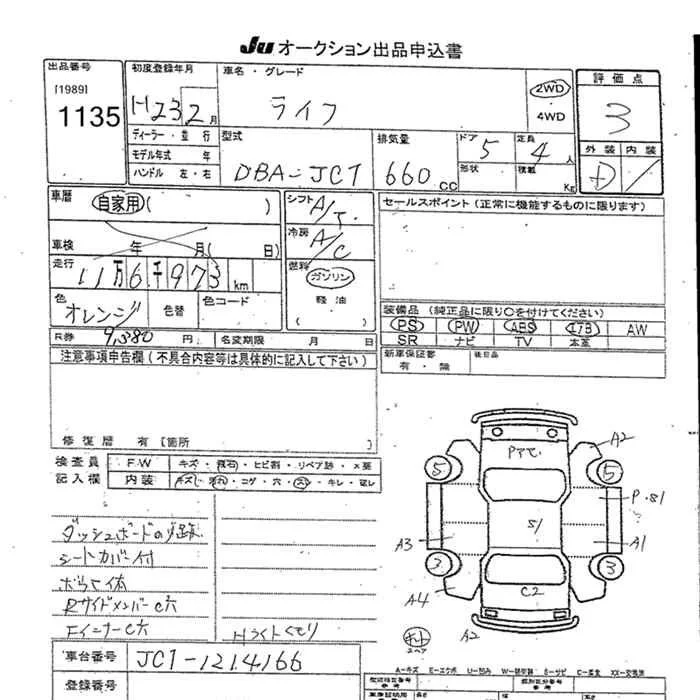 Ju オークション出品申込書
出品番号
[1989]
1135
初度登録年月
H23 2月
ディーラー・並行
モデル年式 年
ハンドル 左・右
車名・グレード
ライフ
2WD
4WD
型式
DBA-JC1
排気量
660 CC
ドア 5
形状
定員 4 人
積載 Kg
評価点
3
外装 内装
D
車歴
自家用( )
車検 年 月( 日)
走行
11万6千973 km
色
オレンジ
色替
色コード
R券 9,380 円
名変期限 月 日
シフト
A/T
冷房
A/C
燃料
ガソリン
軽油
セールスポイント(正常に機能するものに限ります)
装備品(純正品に限り○を付けてください)
PS PW ABS エアB AW
SR ナビ TV 本革
新車保証書
有・無
後日品
注意事項申告欄(不具合内容等は具体的に記入して下さい)
修復歴 有[箇所 ]
検査員
記入欄
FW キズ・飛石・ヒビ割・リペア跡・×要
内装 キズ・汚れ・コゲ・穴・スレ・キレ・ビレ
ダッシュボードのり跡
シートカバー付
RサイドメンバーC穴
FインナーC穴
Hライトくもり
A2
5
5
P・S1
S1
A3
A1
3
3
A4
C2
A2
車台番号 JC1-1214166
登録番号
A-キズ E-エクボ U-凹み W-補修跡 S-サビ C-腐食 XX-交換済